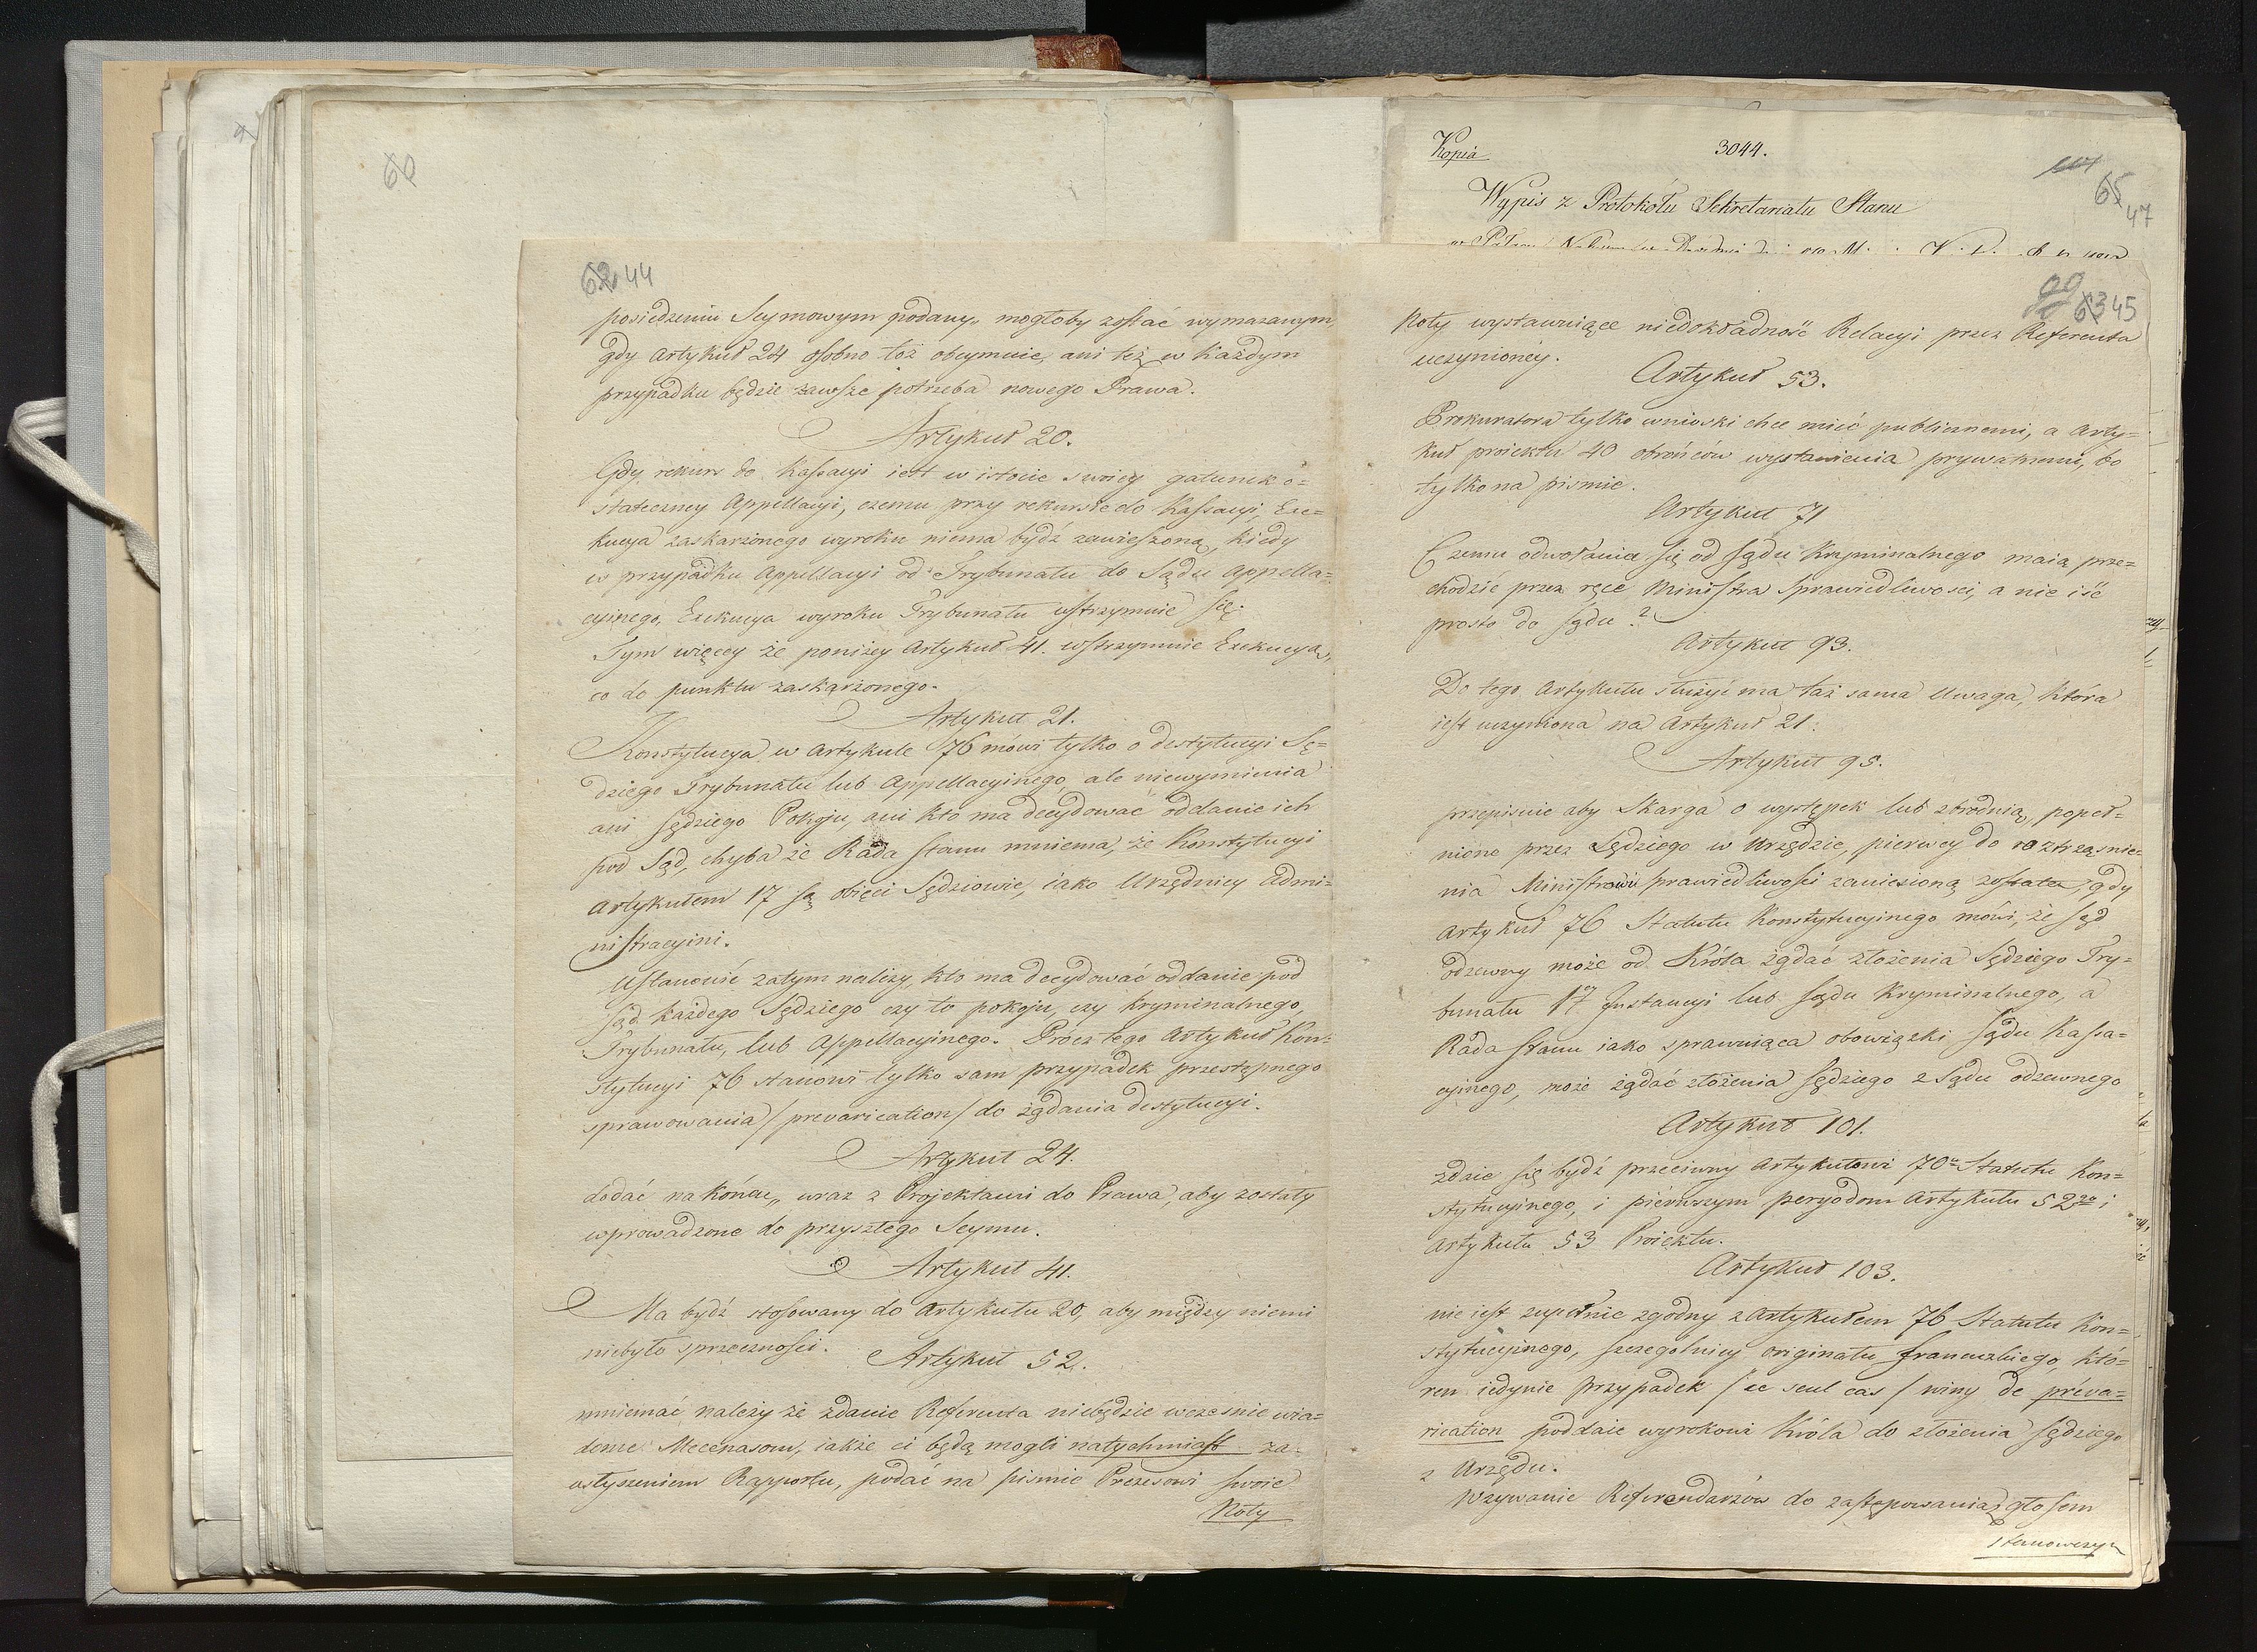 60
62 44
posiedzeniu Seymowym podany, mogłoby zostać wymazanym
gdy Artykuł 24 osobno toż obeymuie, ani też w każdym
przypadku będzie zawsze potrzeba nowego Prawa.
Artykuł 20.
Gdy rekurs do Kassacyi iest w istocie swoiey gatunek o=
stateczney Appellacyi, czemu przy rekursie do Kassacyi, Exe=
kucya zaskarżonego wyroku niema bydź zawieszoną, kiedy
w przypadku Appellacyi od Trybunału do Sądu Appella=
cyinego, Exekucya wyroku Trybunału wstrzymuie się.
Tym więcey że poniżey Artykuł 41. wstrzymuie Exekucyą,
co do punktu zaskarżonego.
Artykuł 21.
Konstytucya w Artykule 76 mówi tylko o destytucyi Sę=
dziego Trybunału lub Appellacyinego, ale niewymienia
ani Sędziego Pokoju, ani kto ma decydować oddanie ich
pod Sąd, chyba że Rada Stanu mniema, że Konstytucyi
Artykułem 17 są obięci Sędziowie, iako Urzędnicy Admi=
nistracyini.
Ustanowić zatym należy, kto ma decydować oddanie pod
Sąd każdego Sędziego czy to pokoju, czy kryminalnego,
Trybunału, lub Appellacyinego. Prócz tego Artykuł Kon=
stytucyi 76 stanowi tylko sam przypadek przestępnego
sprawowania /prevarication/ do żądania destytucyi.
Artykuł 24.
dodać na końcu, wraz z Projektami do Prawa, aby zostały
wprowadzone do przyszłego Seymu.
Artykuł 41.
Ma bydź stosowany do Artykułu 20, aby między niemi
niebyło sprzeczności.
Artykuł 52.
mniemać należy że zdanie Referenta niebędzie wcześnie wia=
dome Mecenasom, iakże ci będą mogli natychmiast za
usłyszeniem Rapportu, podać na piśmie Prezesowi swoie
Noty
Kopia
3044.
65
47
Wypis z Protokołu Sekretariatu Stanu
63 45
Noty wystawuiące niedokładność Relacyi przez Referenta
uczynioney.
Artykuł 53.
Prokuratora tylko wnioski chce mieć publicznemi, a Arty=
kuł proiektu 40 obrońców wystawienia prywatnemi, bo
tylko na piśmie.
Artykuł 71
Czemu odwołania się od Sądu Kryminalnego maią prze=
chodzić przez ręce Ministra Sprawiedliwosci, a nie iść
prosto do Sądu?
Artykuł 93.
Do tego Artykułu służyć ma taż sama Uwaga, która
iest uczyniona na Artykuł 21.
Artykuł 95.
przepisuie aby Skarga o występek lub zbrodnią, popeł=
nione przez Sędziego w Urzędzie, pierwey do roztrząśnie=
nia Ministrowi sprawiedliwości zaniesioną została, gdy
Artykuł 76 Statutu Konstytucyinego mówi, że Sąd
odzewny może od Króla żądać złożenia Sędziego Try=
bunału 1ey Instancyi lub Sądu Kryminalnego, a
Rada Stanu iako sprawuiąca obowiązki Sądu Kassa=
cyinego, może żądać złożenia Sędziego z Sądu odzewnego
Artykuł 101.
zdaie się bydź przeciwny Artykułowi 70o Statutu Kon=
stytucyinego, i pierwszym peryodom Artykułu 52go i
Artykułu 53 Proiektu.
Artykuł 103.
nie iest zupełnie zgodny z Artykułem 76 Statutu Kon=
stytucyinego, szczególniey originału francuzkiego, któ=
ren iedynie przypadek /ce seul cas/ winy de préva=
rication poddaie wyrokowi Króla do złożenia Sędziego
z Urzędu.
Wzywanie Referendarzów do zastępowania z głosem
stanowczym